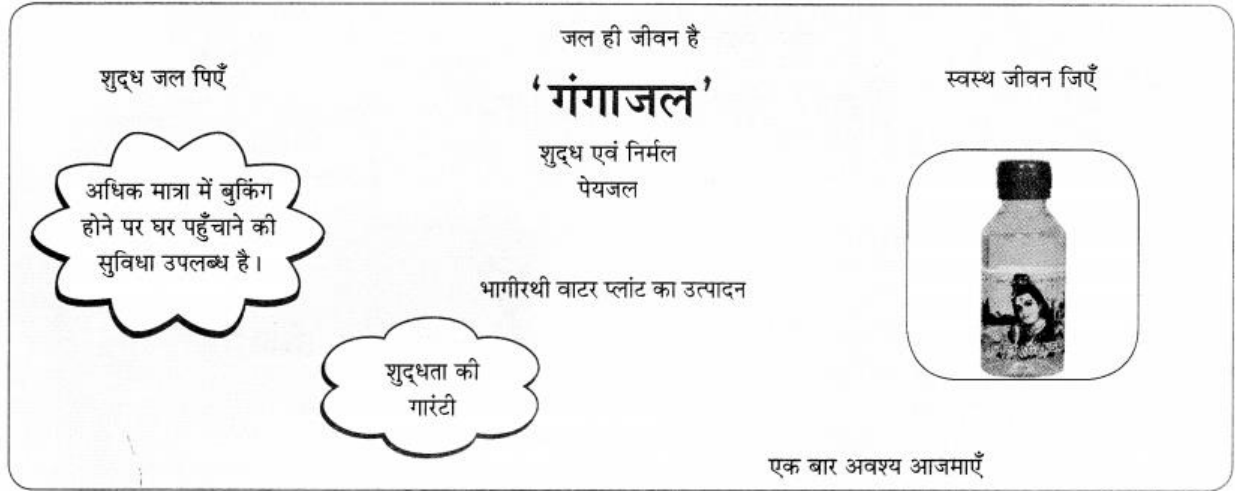 जल ही जीवन है
शुद्ध जल पिएँ
'गंगाजल'
स्वस्थ जीवन जिएँ
शुद्ध एवं निर्मल
पेयजल
अधिक मात्रा में बुकिंग
होने पर घर पहुँचाने की
सुविधा उपलब्ध है।
भागीरथी वाटर प्लांट का उत्पादन
शुद्धता की
गारंटी
एक बार अवश्य आजमाएँ